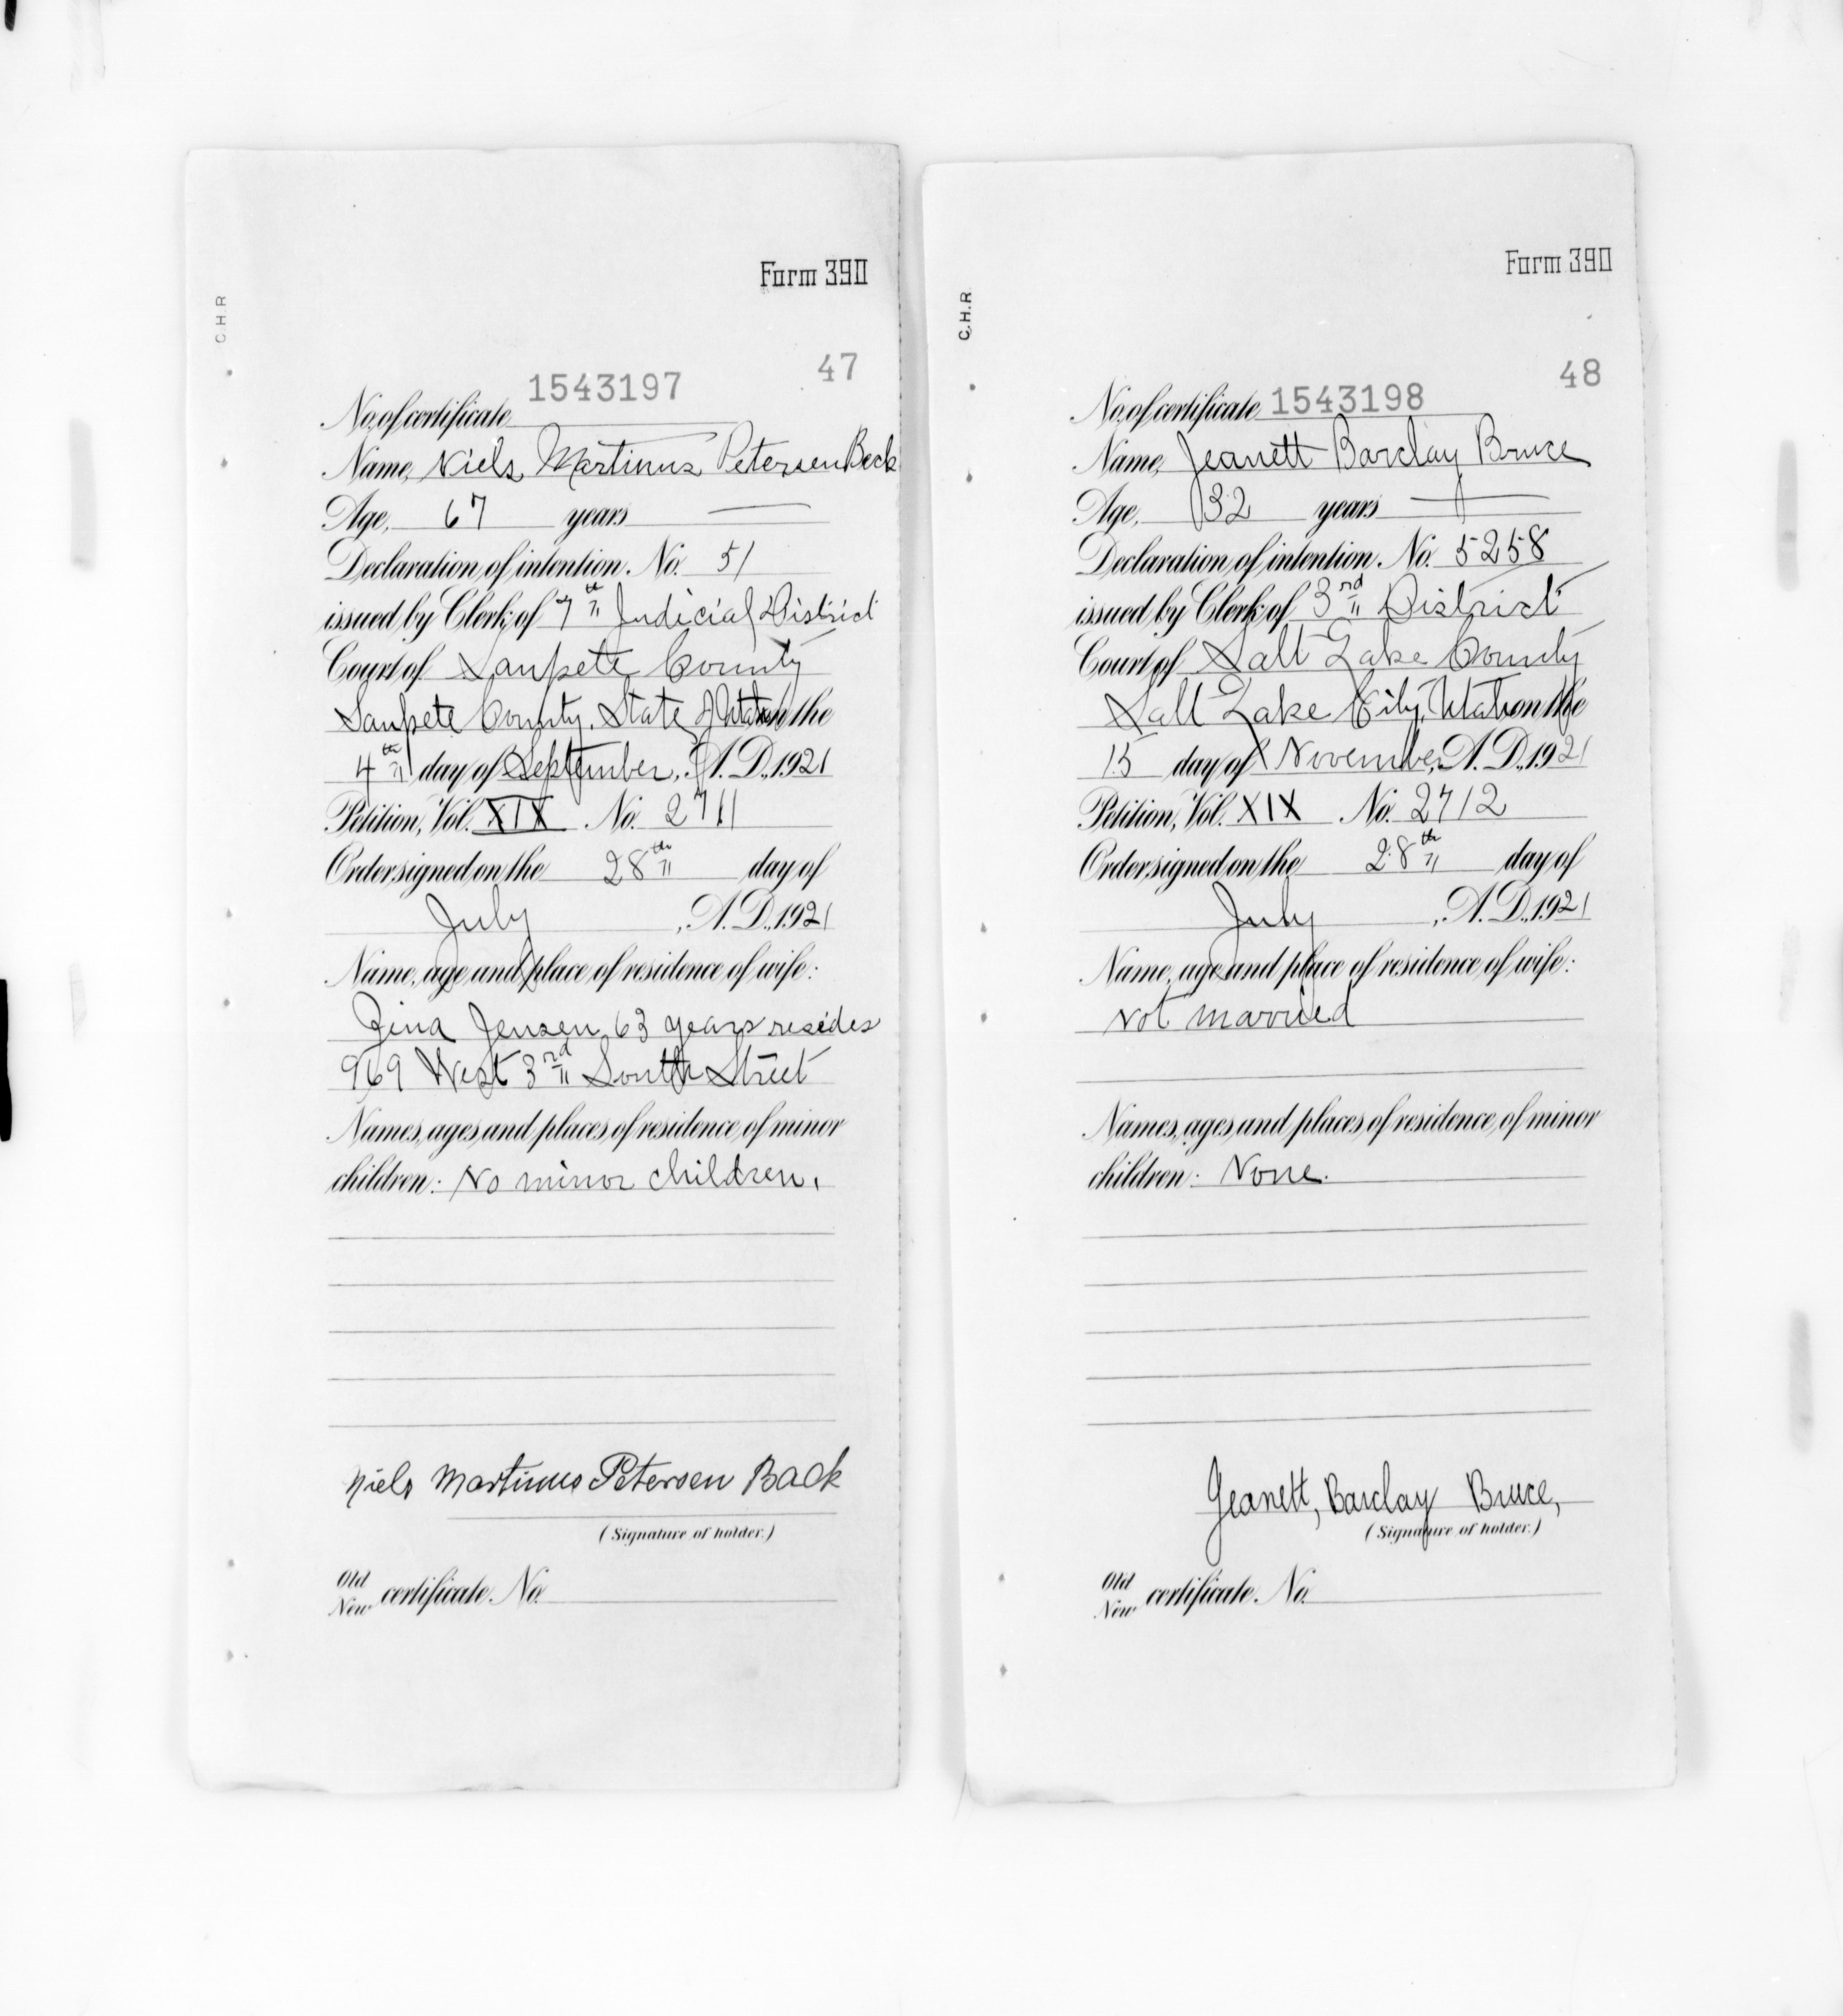 Form 390
C.H.R
47
No. of certificate 1543197
Name, Niels Martinus Petersen Beck
Age, 67 years
Declaration of intention. No. 51
issued by Clerk of 7th Judicial District
Court of Sanpete County
Sanpete County, State of Utah on the
4th day of September, A.D., 1921
Petition, Vol. XIX No. 2711
Order signed on the 28th day of
July, A.D., 1921
Name, age and place of residence of wife:
Zina Jensen, 63 years resides
969 West 3rd South Street
Names, ages and places of residence of minor
children: No minor children.
Niels Martinus Petersen Back
(Signature of holder.)
Old
New certificate. No.
Form 390
C.H.R
48
No. of certificate 1543198
Name, Jeanett Barclay Bruce
Age, 32 years
Declaration of intention. No. 5258
issued by Clerk of 3rd District
Court of Salt Lake County
Salt Lake City, Utah on the
15 day of November, A.D., 1921
Petition, Vol. XIX No. 2712
Order signed on the 28th day of
July, A.D., 1921
Name, age and place of residence of wife:
Not married
Names, ages and places of residence of minor
children: None.
Jeanett, Barclay Bruce,
(Signature of holder.)
Old
New certificate. No.